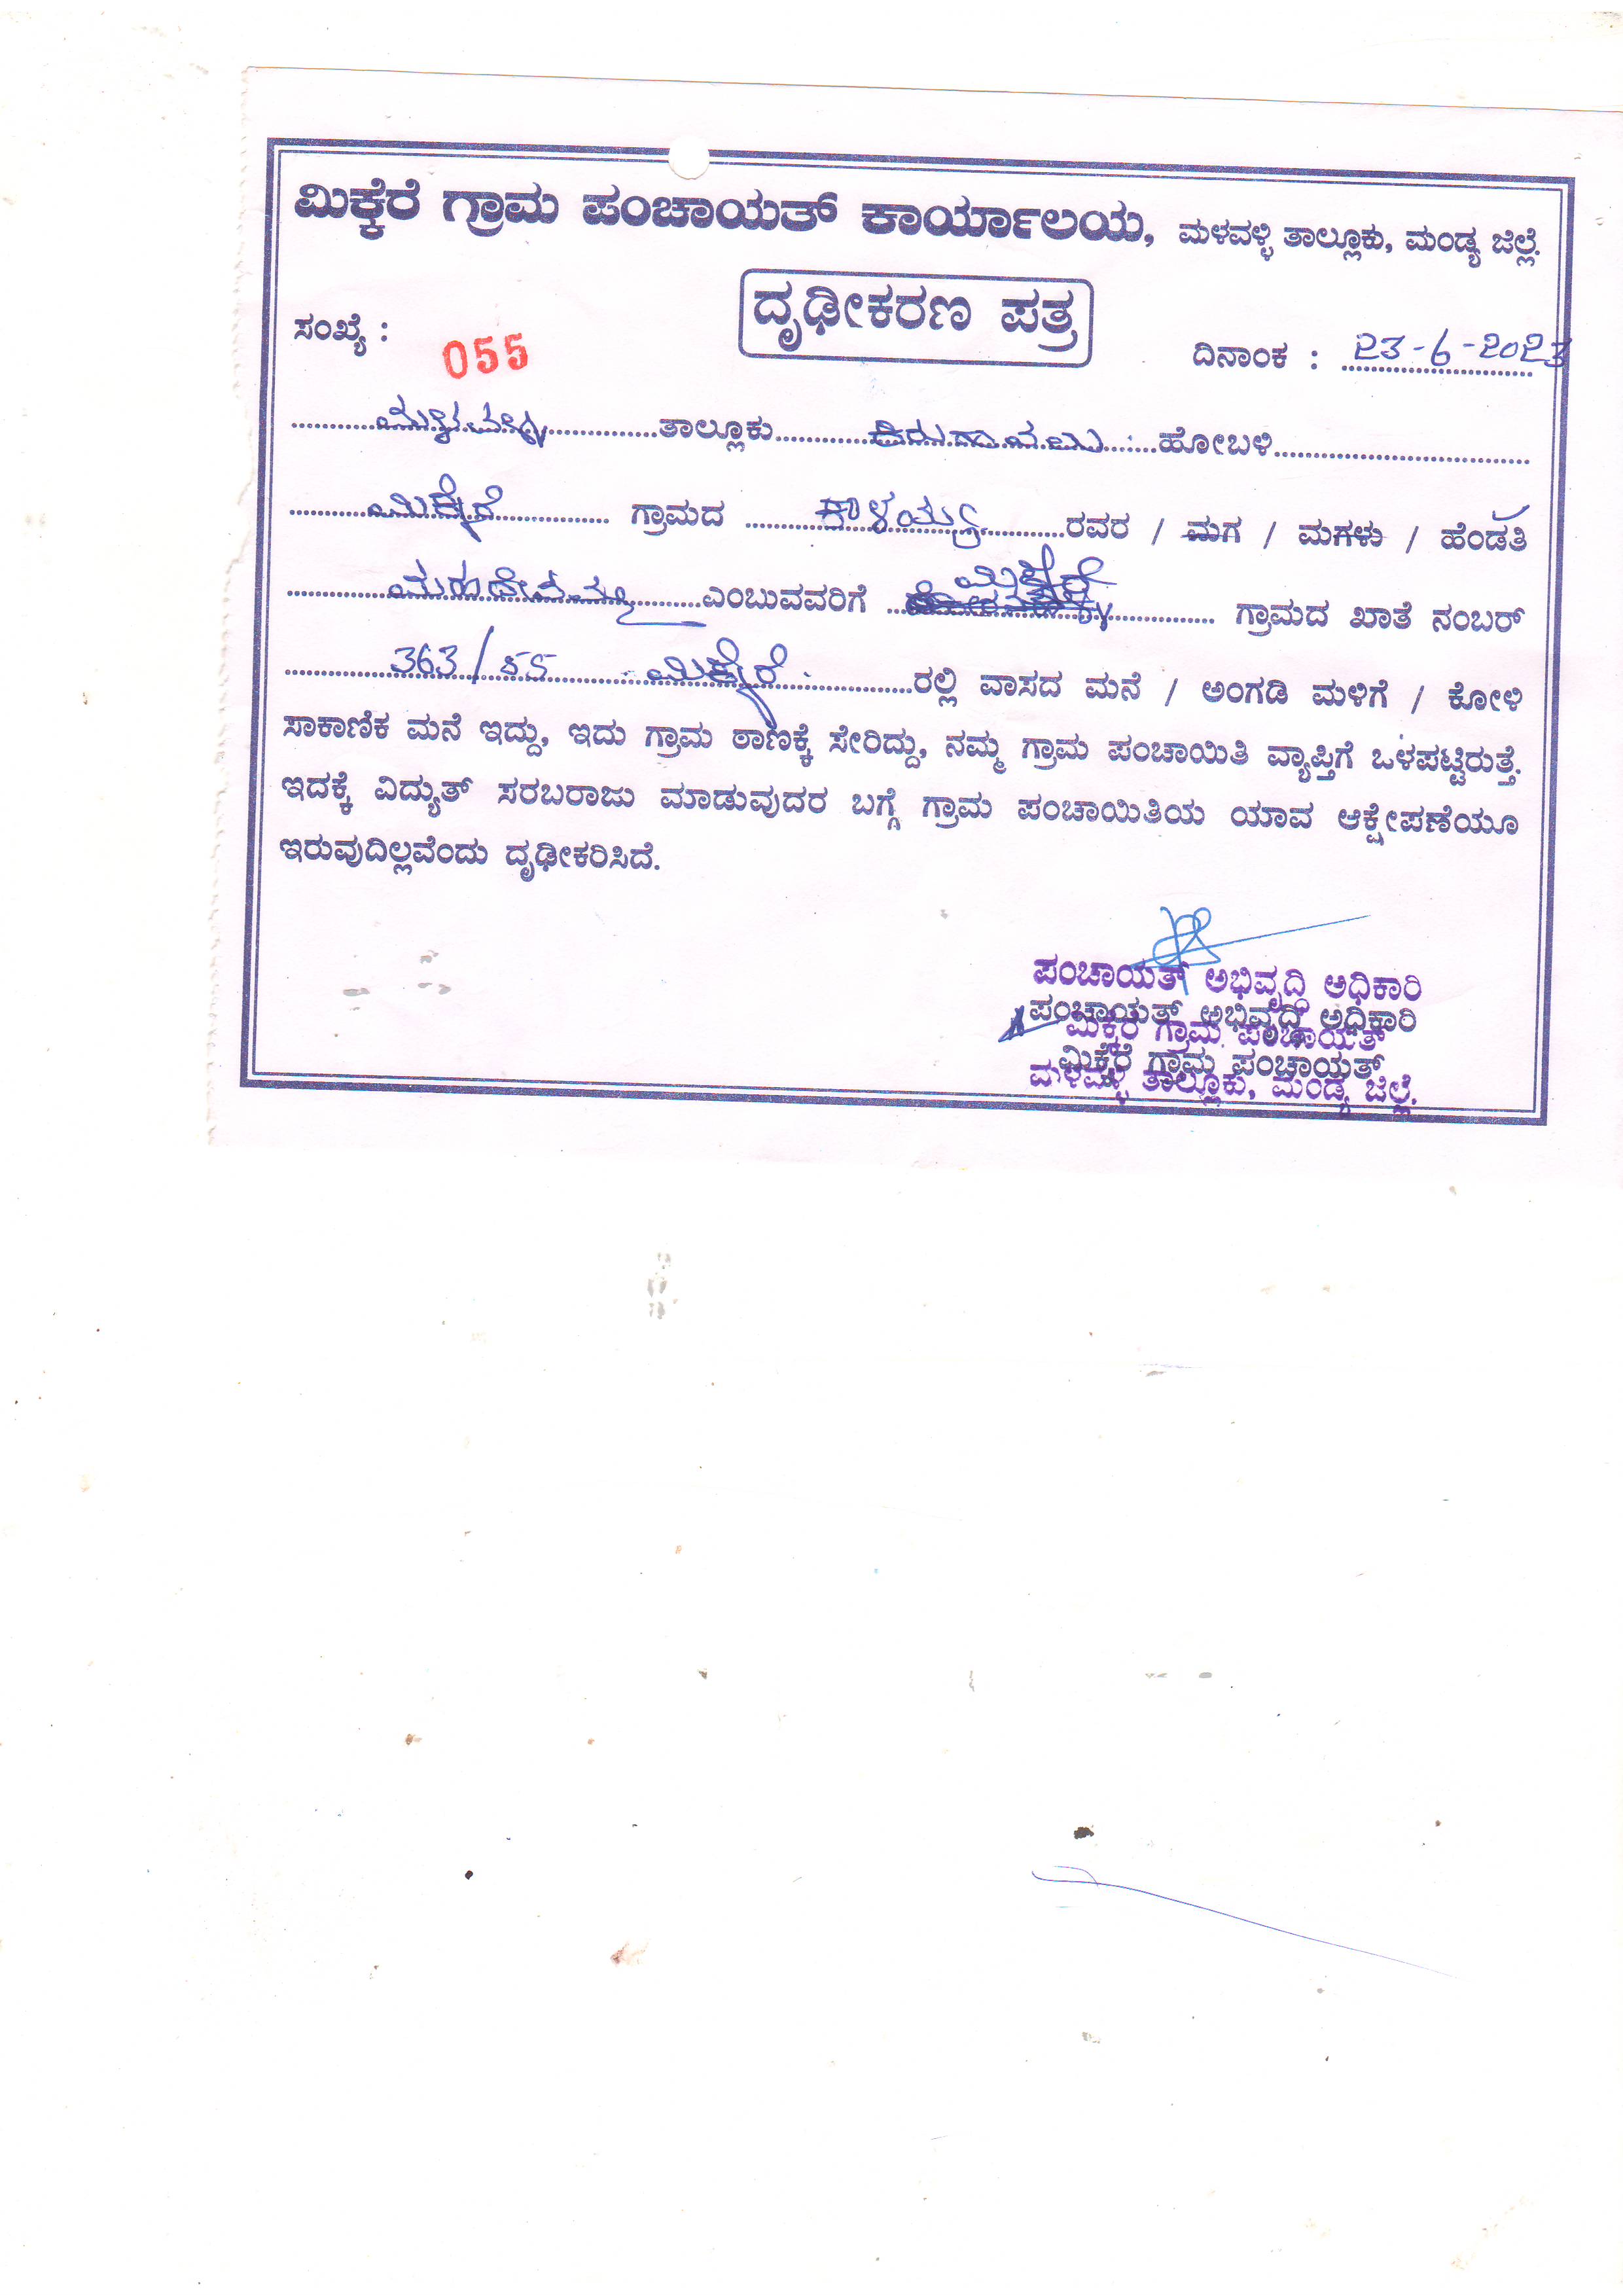 ಮಿಕ್ಕೆರೆ ಗ್ರಾಮ ಪಂಚಾಯತ್ ಕಾರ್ಯಾಲಯ, ಮಳವಳ್ಳಿ ತಾಲ್ಲೂಕು, ಮಂಡ್ಯ ಜಿಲ್ಲೆ.
ದೃಢೀಕರಣ ಪತ್ರ
ಸಂಖ್ಯೆ : 055 ದಿನಾಂಕ : 23-6-2023
ಮಳವಳ್ಳಿ ತಾಲ್ಲೂಕು ಕಿರುಗಾವಲು ಹೋಬಳಿ
ಮಿಕ್ಕೆರೆ ಗ್ರಾಮದ ಕಾಳಯ್ಯ ರವರ / ಮಗ / ಮಗಳು / ಹೆಂಡತಿ
ಮಹದೇವಮ್ಮ ಎಂಬುವವರಿಗೆ ಮಿಕ್ಕೆರೆ ಗ್ರಾಮದ ಖಾತೆ ನಂಬರ್
363/55 ಮಿಕ್ಕೆರೆ ರಲ್ಲಿ ವಾಸದ ಮನೆ / ಅಂಗಡಿ ಮಳಿಗೆ / ಕೋಳಿ
ಸಾಕಾಣಿಕ ಮನೆ ಇದ್ದು, ಇದು ಗ್ರಾಮ ಠಾಣಕ್ಕೆ ಸೇರಿದ್ದು, ನಮ್ಮ ಗ್ರಾಮ ಪಂಚಾಯಿತಿ ವ್ಯಾಪ್ತಿಗೆ ಒಳಪಟ್ಟಿರುತ್ತೆ.
ಇದಕ್ಕೆ ವಿದ್ಯುತ್ ಸರಬರಾಜು ಮಾಡುವುದರ ಬಗ್ಗೆ ಗ್ರಾಮ ಪಂಚಾಯಿತಿಯ ಯಾವ ಆಕ್ಷೇಪಣೆಯೂ
ಇರುವುದಿಲ್ಲವೆಂದು ದೃಢೀಕರಿಸಿದೆ.
ಪಂಚಾಯತ್ ಅಭಿವೃದ್ಧಿ ಅಧಿಕಾರಿ
ಪಂಚಾಯತ್ ಅಭಿವೃದ್ಧಿ ಅಧಿಕಾರಿ
ಮಿಕ್ಕೆರೆ ಗ್ರಾಮ ಪಂಚಾಯತ್
ಮಿಕ್ಕೆರೆ ಗ್ರಾಮ ಪಂಚಾಯತ್
ಮಳವಳ್ಳಿ ತಾಲ್ಲೂಕು, ಮಂಡ್ಯ ಜಿಲ್ಲೆ.